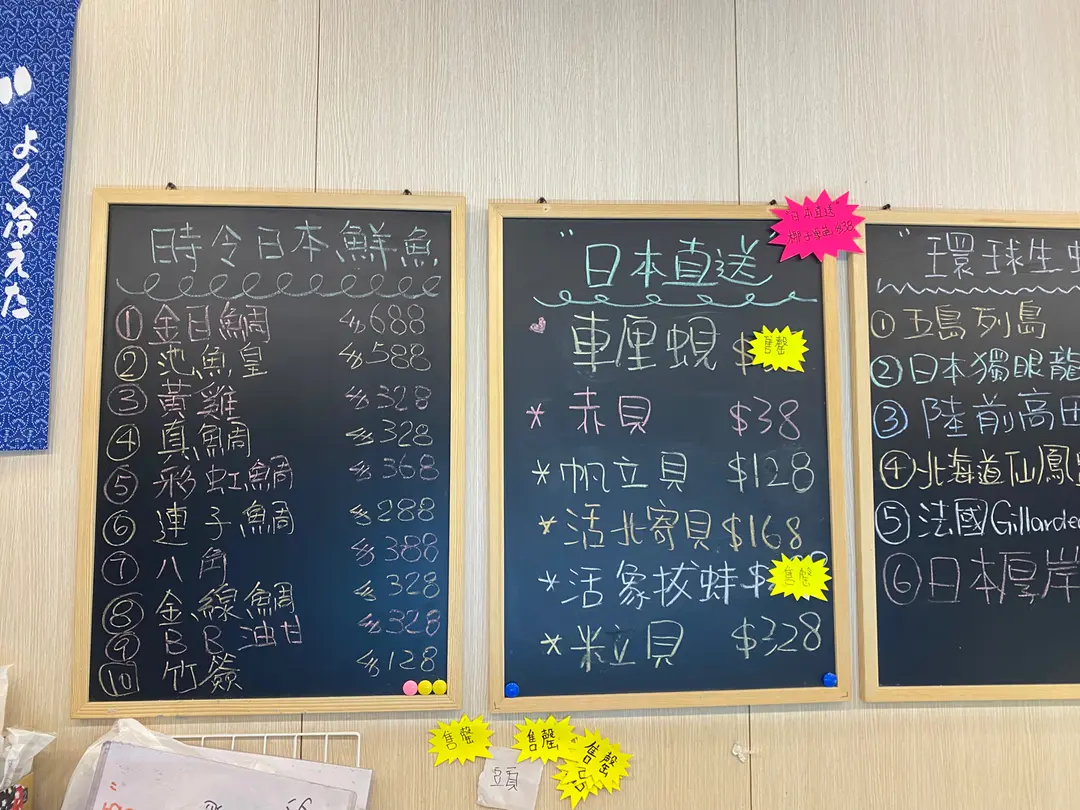 よく冷えた
時令日本鮮魚
① 金目鯛 $688
② 池魚皇 $588
③ 黃雞 $328
④ 真鯛 $328
⑤ 彩虹鯛 $368
⑥ 連子鯛 $288
⑦ 八角 $388
⑧ 金線鯛 $328
⑨ BB油甘 $328
⑩ 竹簽 $128
"日本直送"
"日本直送"
車厘蜆 $
售罄
* 赤貝 $38
* 帆立貝 $128
* 活北寄貝 $168
* 活象拔蚌 $
售罄
* 粒立貝 $328
"環球生
① 五島列島
② 日本獨眼龍
③ 陸前高田
④ 北海道仙鳳
⑤ 法國Gillarde
⑥ 日本厚岸
售罄
售罄
售罄
頭